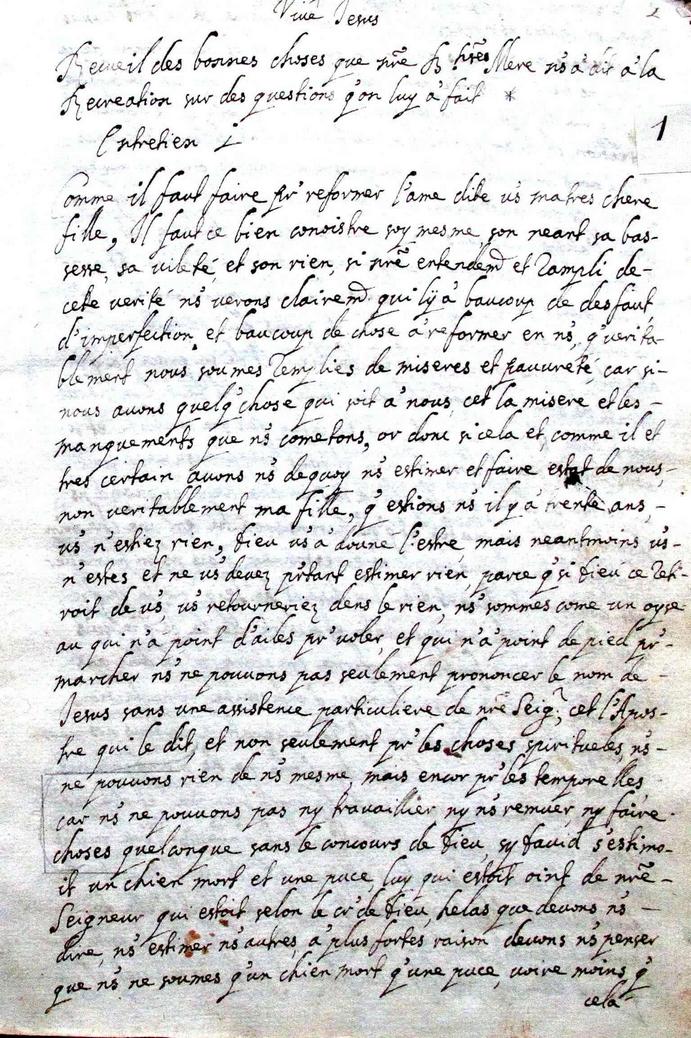 Vive Jesus
Recueil des bonnes choses que nre R hres Mere ns a dit a la
Recreation sur des questions q'on luy à fait *
Entretien 1
1
Comme il faut faire pr reformer l'ame dite vs ma tres chere
fille, Il faut ce bien conoistre soy mesme, son neant sa bas-
sesse, sa vileté, et son rien, si nre entendemt et rampli de-
cete verité ns verons clairemt qui ly à baucoup de desfaut
d'imperfection et baucoup de chose à reformer en ns, q'verita-
blement nous soumes remplies de miseres et pauvreté, car si-
nous avons quelq'chose qui soit a nous, cet la misere et les-
manquements que ns cometons, or donc si cela et, comme il et
tres certain avons ns dequoy ns estimer et faire estat de nous,-
non veritablement ma fille, q'estions ns il y à trente ans,-
vs n'estiez rien, Dieu vs à donné l'estre mais neantmoins vs-
n'estes et ne vs devez prtant estimer rien, parce q'si Dieu ce reti-
roit de vs, vs retourneriez dens le rien, ns sommes come un oyse
au qui n'à point d'ailes pr voler, et qui n'à point de pied pr-
marcher ns ne pouvons pas seulement prononcer le nom de-
Jesus sans une assistence particuliere de nre Seigr, cet l'Apos-
tre qui le dit, et non seulement pr les choses spiritueles, ns-
ne pouvons rien de ns mesme, mais encor pr les temporelles,
car ns ne pouvons pas ny travaillier, ny ns remuer, ny faire-
choses quelconque, sans le concours de Dieu, sy David s'estimo-
it un chien mort et une puce, luy qui estoit oint de nre-
Seigneur qui estoit selon le cr de Dieu, helas que devons ns-
dire, ns estimer ns autres, à plus fortes raison devons ns penser
que ns ne soumes q'un chien mort q'une puce, voire moins q'
cela